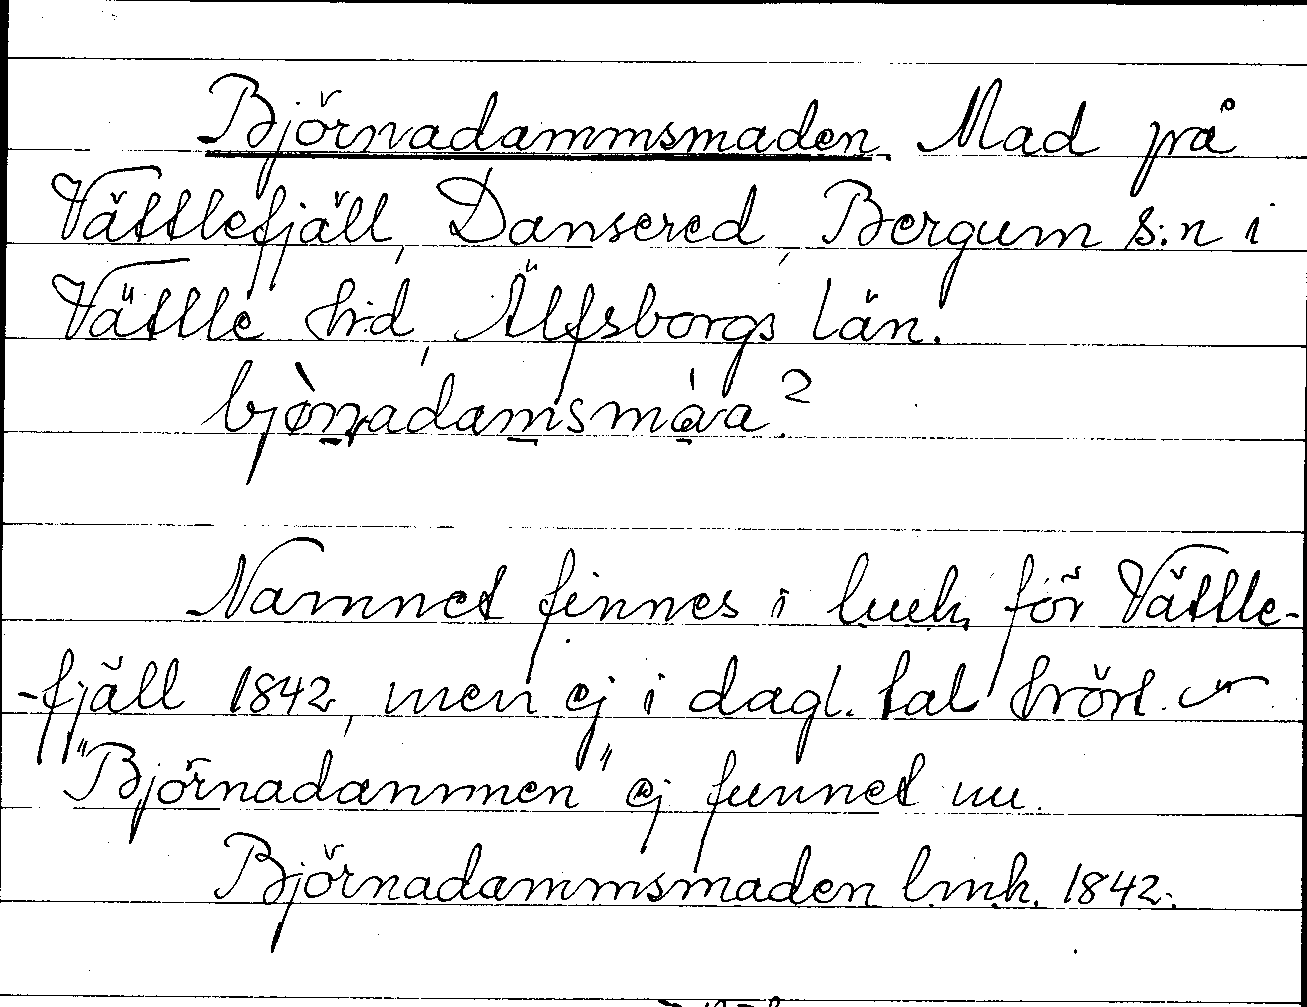 Björnadammsmaden. Mad på
Vättlefjäll, Dansered, Bergum s:n i
Vättle hd, Älfsborgs län.
bjò̤nadamsmàva?
Namnet finnes i lmk. för Vättle-
-fjäll 1842, men ej i dagl. tal hört.
"Björnadammen" ej funnet nu.
Björnadammsmaden lmk. 1842.